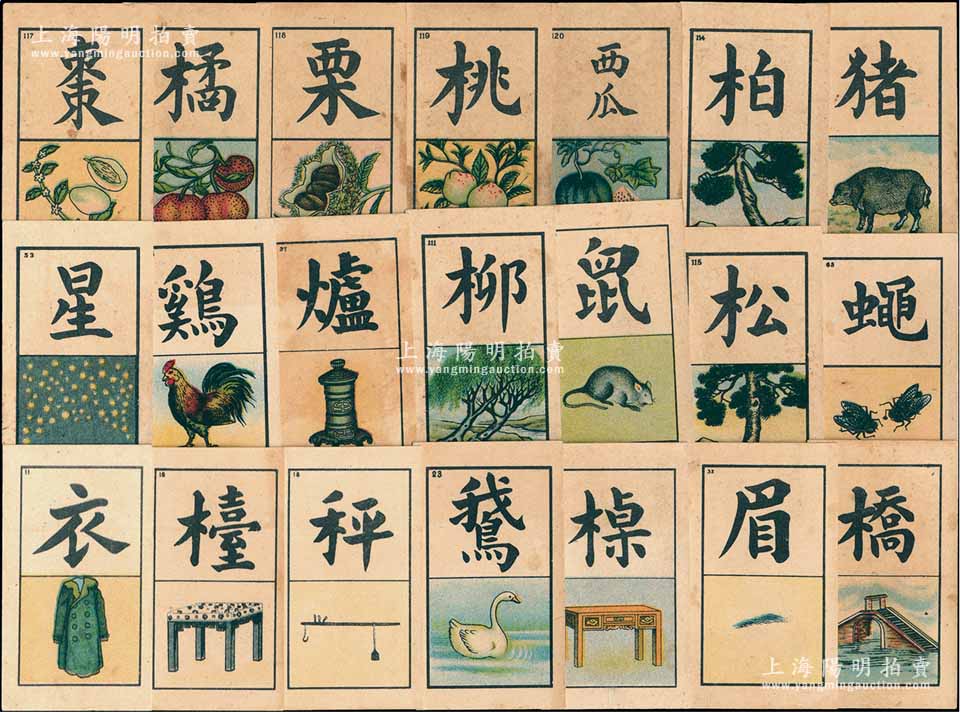 117
棗
橘
118
栗
119
桃
120
西
瓜
114
柏
猪
上海陽明拍賣
www.yangmingauction.com
上海陽明拍賣
www.yangmingauction.com
53
星
鷄
37
爐
111
柳
鼠
115
松
65
蠅
上海陽明拍賣
www.yangmingauction.com
11
衣
16
檯
18
秤
23
鵝
槕
32
眉
橋
上海陽明拍賣
www.yangmingauction.com